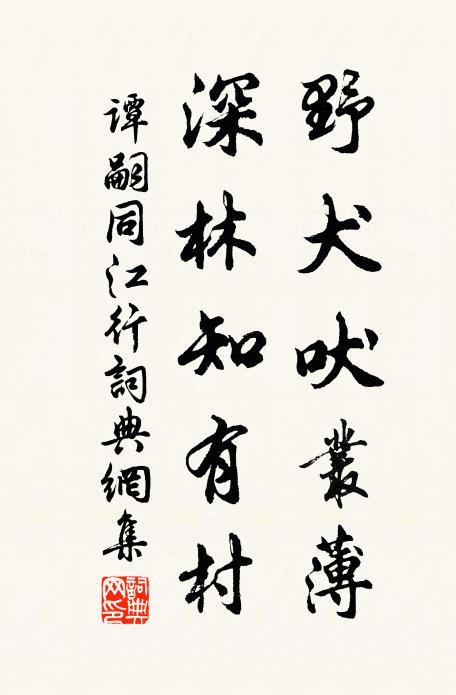 野犬吠叢薄
深林知有村
谭嗣同江行詞典網集
詞典網印